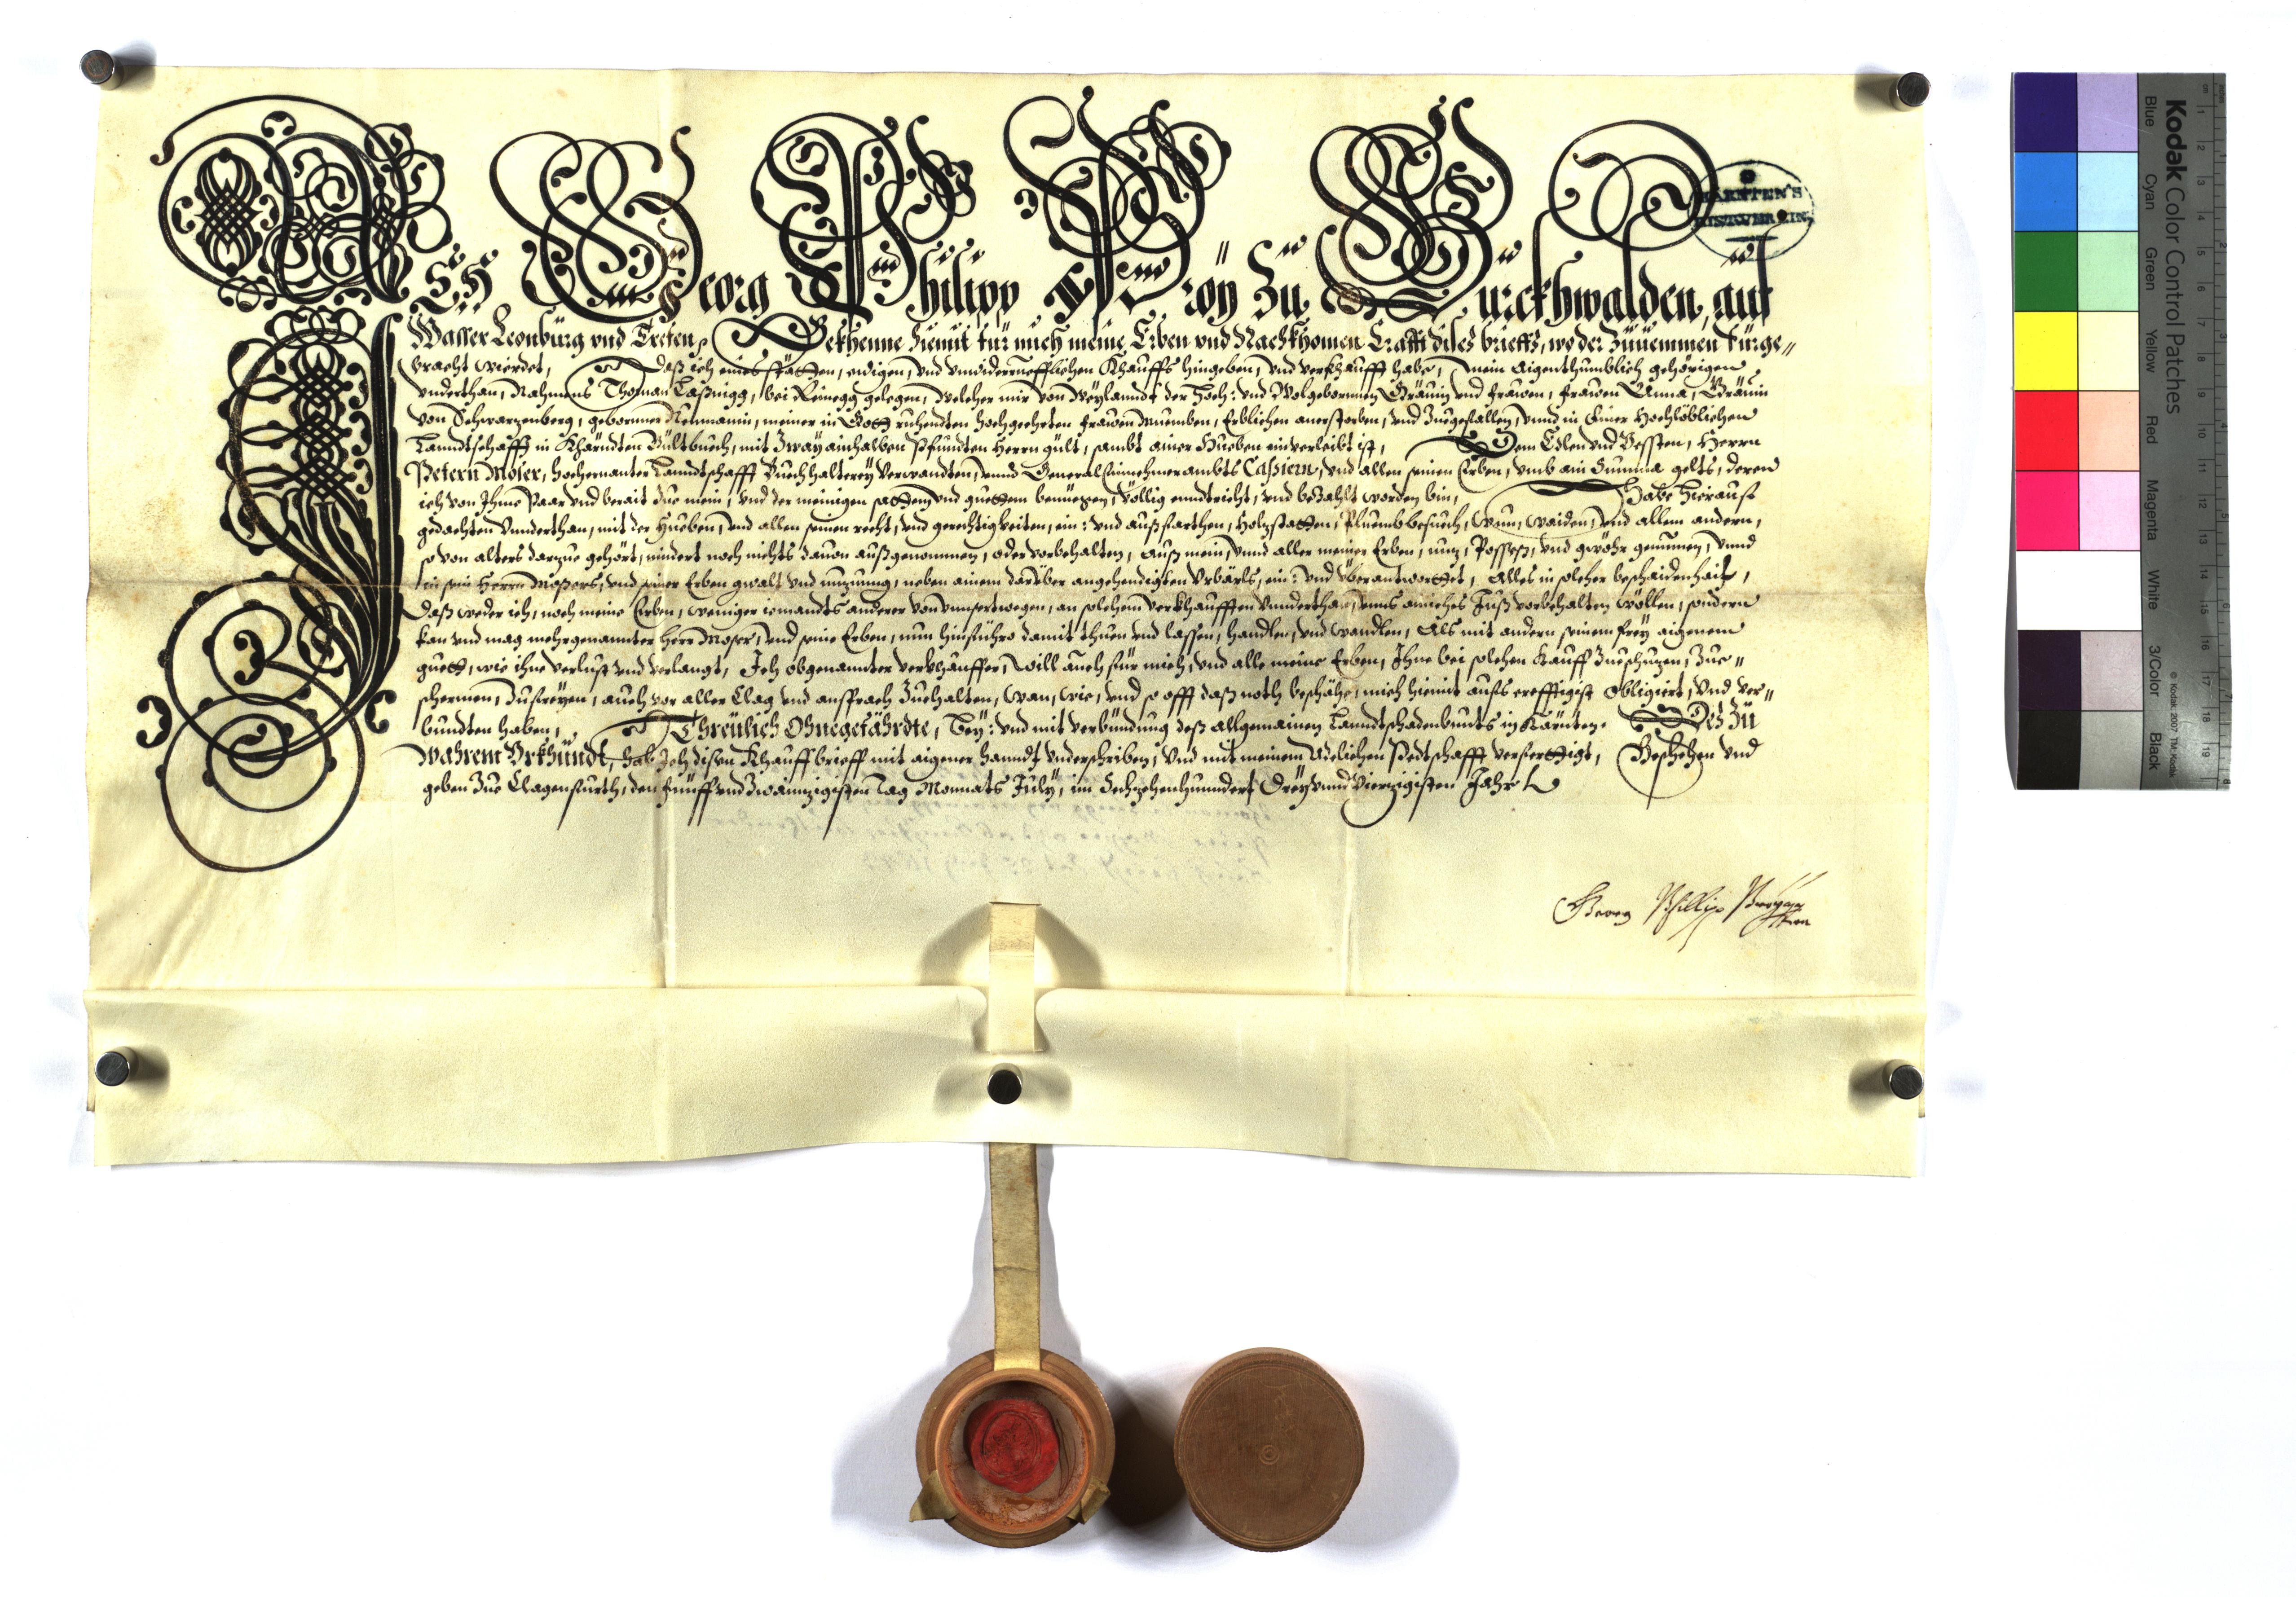 ICH Georg Philipp Proÿ Zü Bürckhwalden, auf
Wasser Leonbürg vnd Trefen, Bekhenne hiemit für mich meine Erben vnd Nachkhomen Crafft dises brieffs, wo der Zuuernemmen fürge„
bracht wierdet, Daß ich eines stätten, ewigen, vnd vnwiderruefflichen Khauffs hingeben, vnd verkhaufft habe, mein Aigenthumblich gehörigen
vnderthan, Nahmens Thoman Laßnigg, bei Reinegg gelegen, welcher mir von Weylanndt der Hoch: vnd Wolgebornnen Gräuin vnd frawen, frawen Anna, Gräuin
von Schwarzenberg, gebornner Neumanin, meiner in Gott ruhendten hochgeehrten frawen Muemben, Erblichen anerstorben, vnd Zuegefallen, vnnd in Einer Hochlöblichen
Lanndtschafft in Khärndten Gültbuech, mit Zway ainhalben Pfundten Herrn gült, sambt ainer Hueben einverleibt ist, Dem Edlen vnd Vessten, Herrn
Petern Moser, hochernanter Lanndtschafft Buechhalterey Verwandten, vnnd General Einnehmerambts Caßiern, vnd allen seinen Erben, vmb ain Summa gelts, deren
ich von Ihme Paar vnd berait Zue mein, vnd der meinigen satten vnd guettem benüegen, völlig enndtricht, vnd bezahlt worden bin, Habe hierauf
gedachten Vnderthan, mit der Hueben, vnd allen seinen recht, vnd gerechtigkeiten, ein: vnd außfarthen, Holzstatten, Pluembbesuech, Wun, Waiden, vnd allem andern,
so von alters darzue gehört, nindert noch nichts dauon außgenomen, oder vorbehalten, Auß mein, vnnd aller meiner Erben, nuz, Posseß, vnd gwöhr genumen, vnnd
in sein Herrn Moßers, vnd seiner Erben gwalt vnd nuzung, neben ainem darüber angehendigten Vrbärls, ein: vnd überantworttet, Alles in solcher beschaidenhait,
daß weder ich, noch meine Erben, weniger iemandts anderer von vnnsertwegen, an solchem verkhaufften Vnnderthan, vnns ainiches Juß vorbehalten wöllen, sondern
kan vnd mag mehrgenannter Herr Moser, vnd seine Erben, nun hinführo damit thuen vnd lassen, handlen, vnd wandlen, Als mit andern seinem frey aigenem
guett, wie ihne verlust vnd verlangt, Ich obgenannter verkhauffer, will auch für mich, vnd alle meine Erben, Ihne bei solchen Kauff Zueschuzen, Zue„
schermen, Zufreyen, auch vor aller Clag vnd ansprach Zuehalten, wan, wie, vnd so offt daß noth beschähe, mich hiemit aufs crefftigist Obligiert, vnd ver„
bundten haben, Threülich Ohnegefährdte, Beÿ: vnd mit verbündung deß allgemainen Lanndtschadenbunts in Kärnten. Des Zü
Wahrem Vrkhündt, hab Ich disen Khauffbrieff mit aigner hanndt vnderschriben, Vnd mit meinem Adelichen Pedtschafft verferttigt, Beschehen vnd
geben Zue Clagenfurth, den fünffvndZwannzigisten Tag Monnats July, im Sechzehenhunndert Dreyvnnd Vierzigisten Jahr
Georg Phillip Proÿ
KÄRNTEN'S